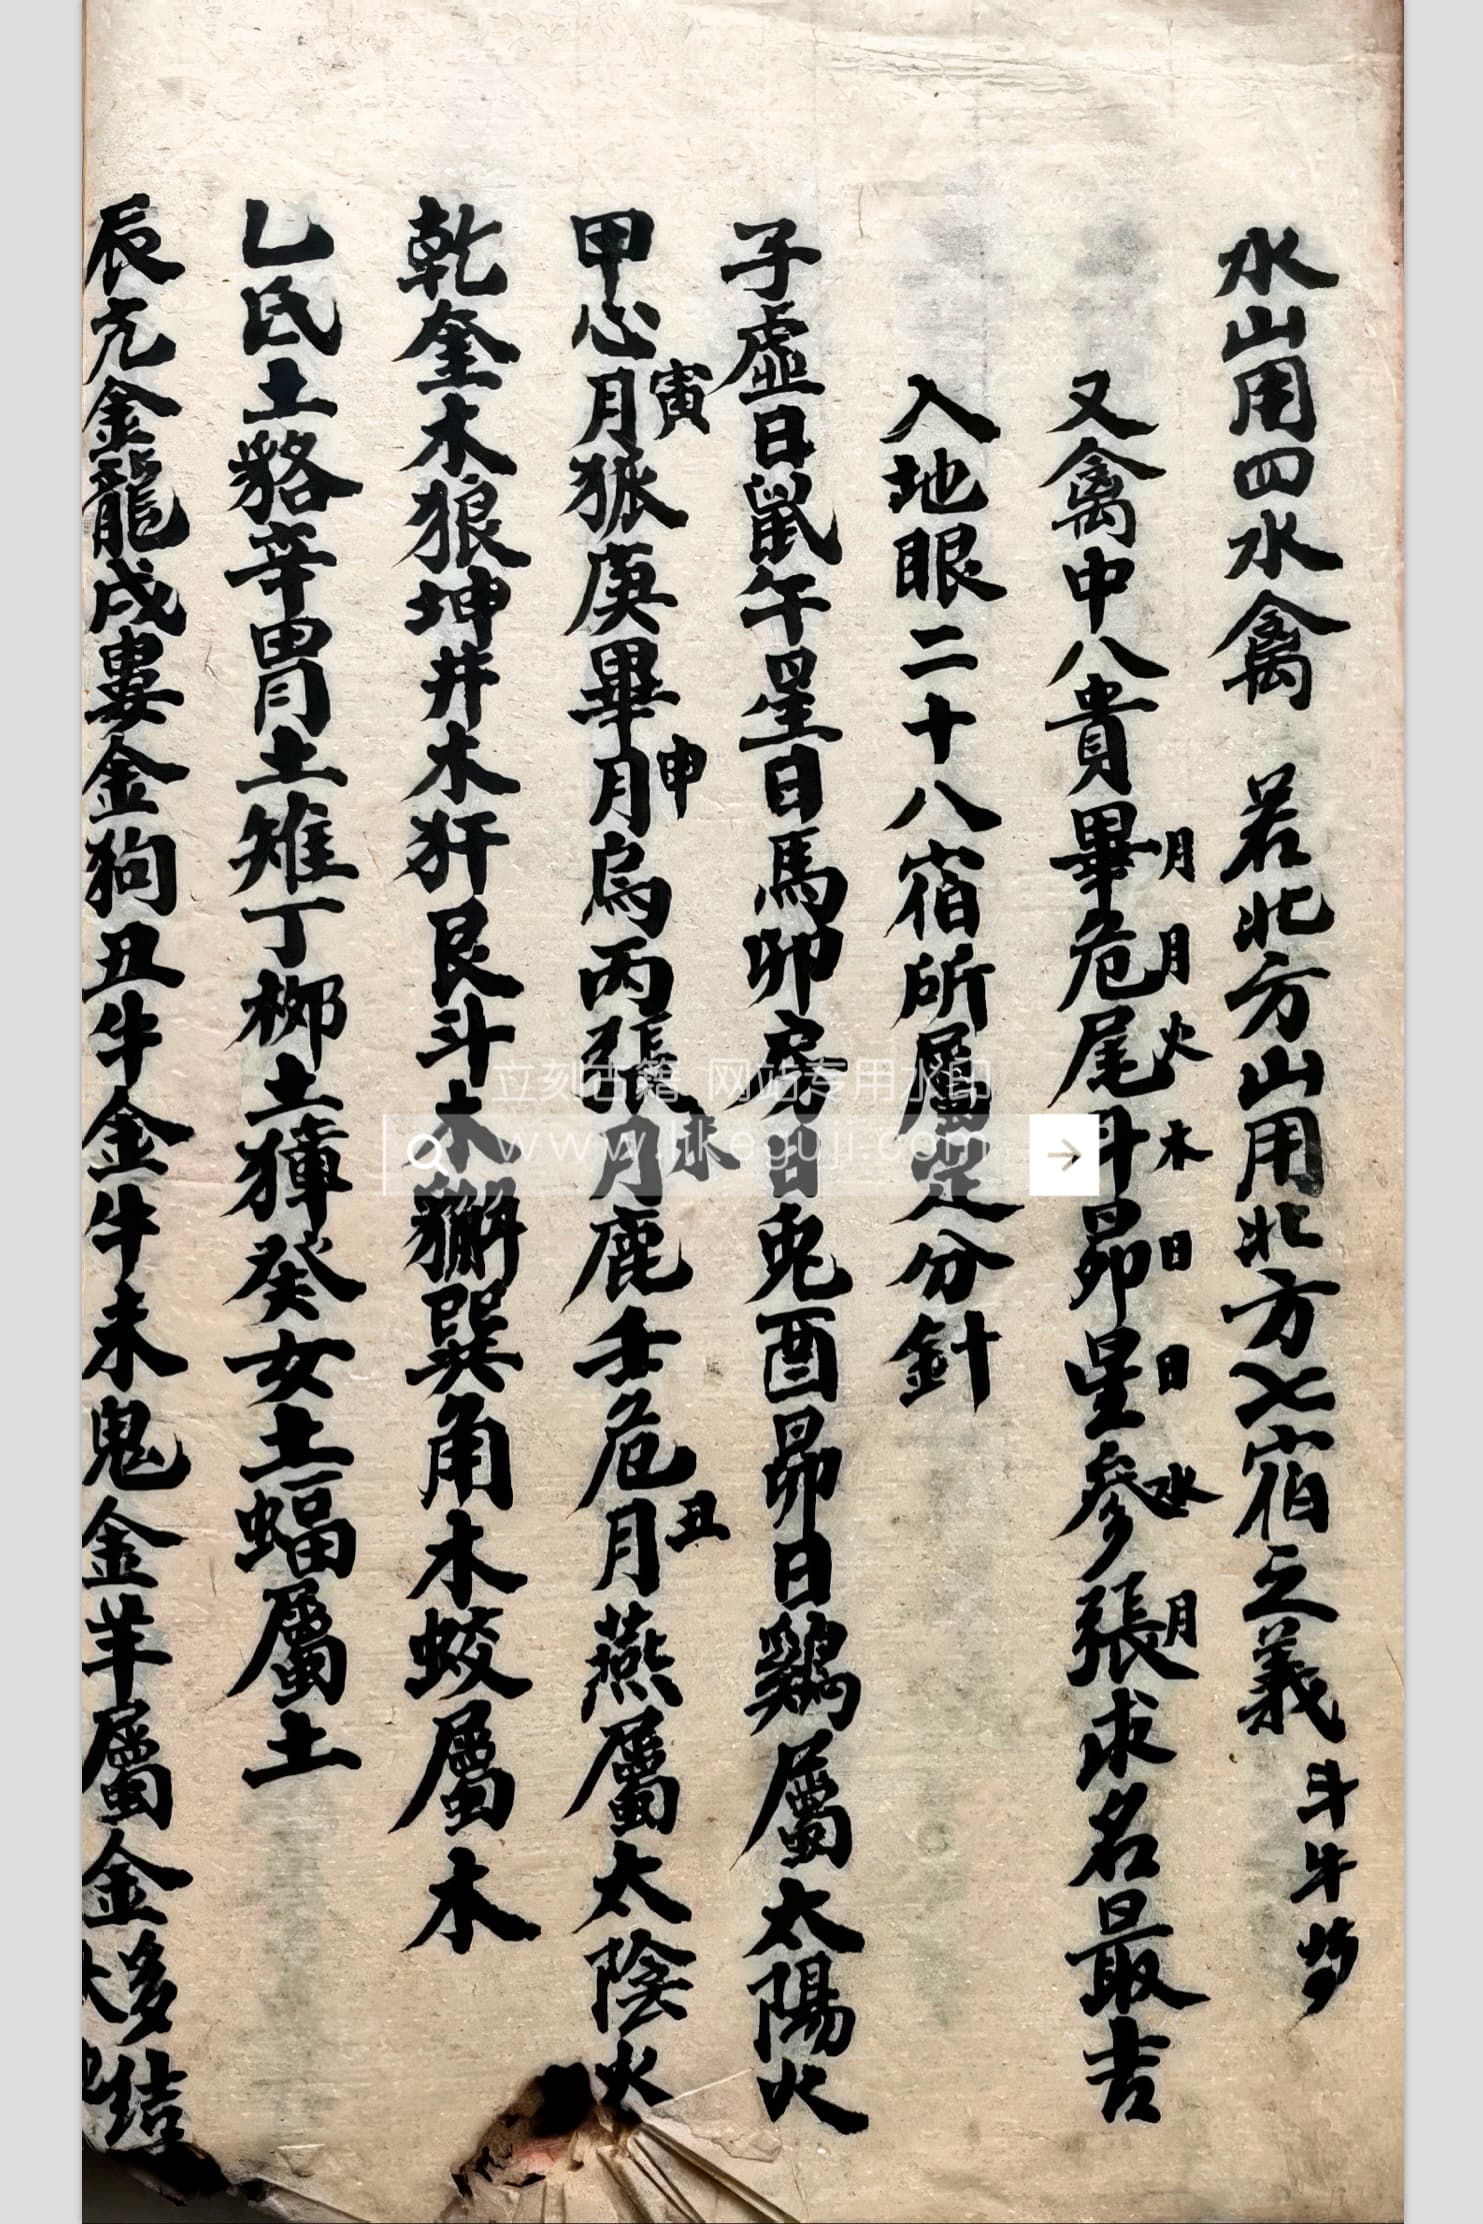 水山用四水禽 若北方山用北方七宿之義 斗牛
又禽中八貴畢月危月尾火斗木昴日星日參水張月求名最吉
入地眼二十八宿所屬定分針
子虛日鼠午星日馬卯房日兎酉昴日鷄屬太陽火
甲心寅月狐庚畢申月烏丙張未月鹿壬危丑月燕屬太陰火
乾奎木狼坤井木犴艮斗木獬巽角木蛟屬木
乙氐土貉辛胃土雉丁柳土獐癸女土蝠屬土
辰亢金龍戌婁金狗丑牛金牛未鬼金羊屬金
立刻古籍 网站专用水印
www.likeguji.com